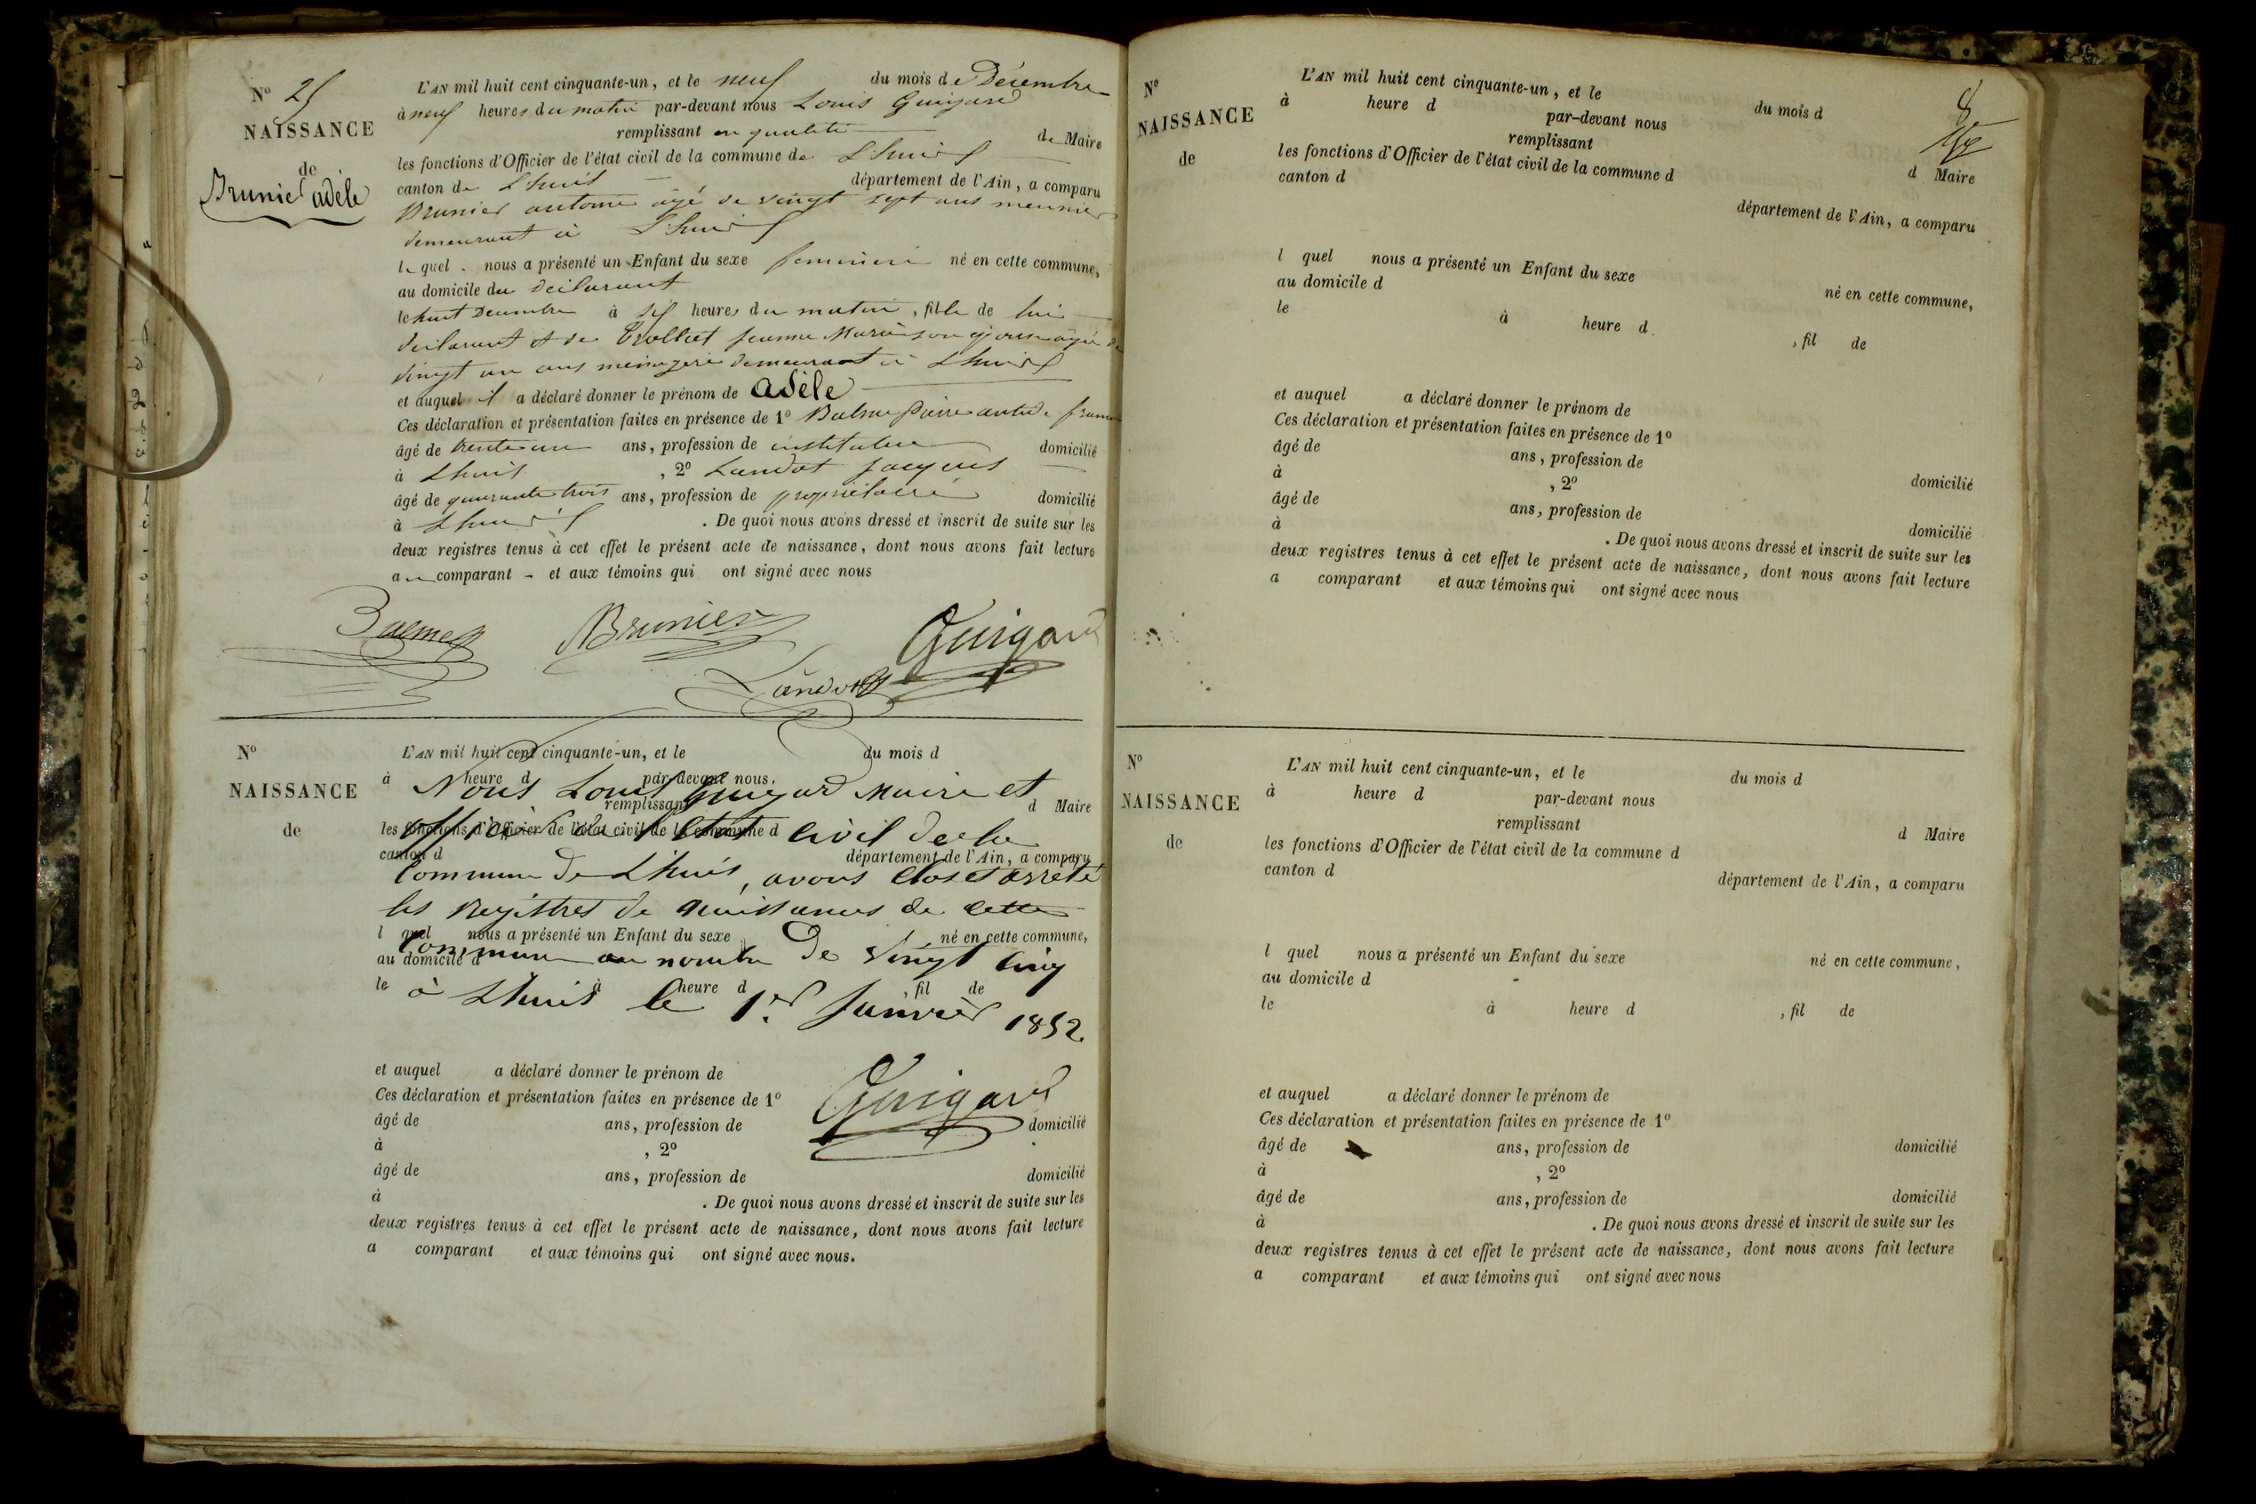 N° 25
NAISSANCE
de
Brunier adèle
L'AN mil huit cent cinquante-un, et le neuf du mois de Décembre
à neuf heures du matin par-devant nous Louis Guigard
remplissant en qualité de Maire
les fonctions d'Officier de l'état civil de la commune de Lhuis
canton de Lhuis département de l'Ain, a comparu
Brunier antoine âgé de vingt sept ans meunier
demeurant à Lhuis
le quel nous a présenté un Enfant du sexe feminin né en cette commune,
au domicile du déclarant
le huit Décembre à six heures du matin, fille de lui
déclarant et de Trolliet jeanne Marie son épouse âgée de
vingt un ans ménagère demeurant à Lhuis
et auquel il a déclaré donner le prénom de adèle
Ces déclaration et présentation faites en présence de 1° Balme Pierre
âgé de trente un ans, profession de instituteur domicilié
à Lhuis, 2° Landot jacques
âgé de quarante trois ans, profession de propriétaire domicilié
à Lhuis. De quoi nous avons dressé et inscrit de suite sur les
deux registres tenus à cet effet le présent acte de naissance, dont nous avons fait lecture
au comparant et aux témoins qui ont signé avec nous
Balme Brunier Guigard
Landot
N°
NAISSANCE
de
L'AN mil huit cent cinquante-un, et le du mois d
à heure d par-devant nous,
Nous Louis Guigard Maire et
remplissant d Maire
les fonctions d'Officier de l'état civil de la commune d
officier de l'état civil de la
canton d département de l'Ain, a comparu
Commune de Lhuis, avons clos et arrêté
les registres de naissances de cette
l quel nous a présenté un Enfant du sexe né en cette commune,
Commune au nombre de vingt cinq
au domicile d
le à heure d fil de
à Lhuis le 1er Janvier 1852
et auquel a déclaré donner le prénom de
Guigard
Ces déclaration et présentation faites en présence de 1°
âgé de ans, profession de domicilié
à , 2°
âgé de ans, profession de domicilié
à . De quoi nous avons dressé et inscrit de suite sur les
deux registres tenus à cet effet le présent acte de naissance, dont nous avons fait lecture
a comparant et aux témoins qui ont signé avec nous.
8
N°
NAISSANCE
de
L'AN mil huit cent cinquante-un, et le du mois d
à heure d par-devant nous
remplissant d Maire
les fonctions d'Officier de l'état civil de la commune d
canton d département de l'Ain, a comparu
l quel nous a présenté un Enfant du sexe né en cette commune,
au domicile d
le à heure d , fil de
et auquel a déclaré donner le prénom de
Ces déclaration et présentation faites en présence de 1°
âgé de ans, profession de domicilié
à , 2°
âgé de ans, profession de domicilié
à . De quoi nous avons dressé et inscrit de suite sur les
deux registres tenus à cet effet le présent acte de naissance, dont nous avons fait lecture
a comparant et aux témoins qui ont signé avec nous
N°
NAISSANCE
de
L'AN mil huit cent cinquante-un, et le du mois d
à heure d par-devant nous
remplissant d Maire
les fonctions d'Officier de l'état civil de la commune d
canton d département de l'Ain, a comparu
l quel nous a présenté un Enfant du sexe né en cette commune,
au domicile d
le à heure d , fil de
et auquel a déclaré donner le prénom de
Ces déclaration et présentation faites en présence de 1°
âgé de ans, profession de domicilié
à , 2°
âgé de ans, profession de domicilié
à . De quoi nous avons dressé et inscrit de suite sur les
deux registres tenus à cet effet le présent acte de naissance, dont nous avons fait lecture
a comparant et aux témoins qui ont signé avec nous